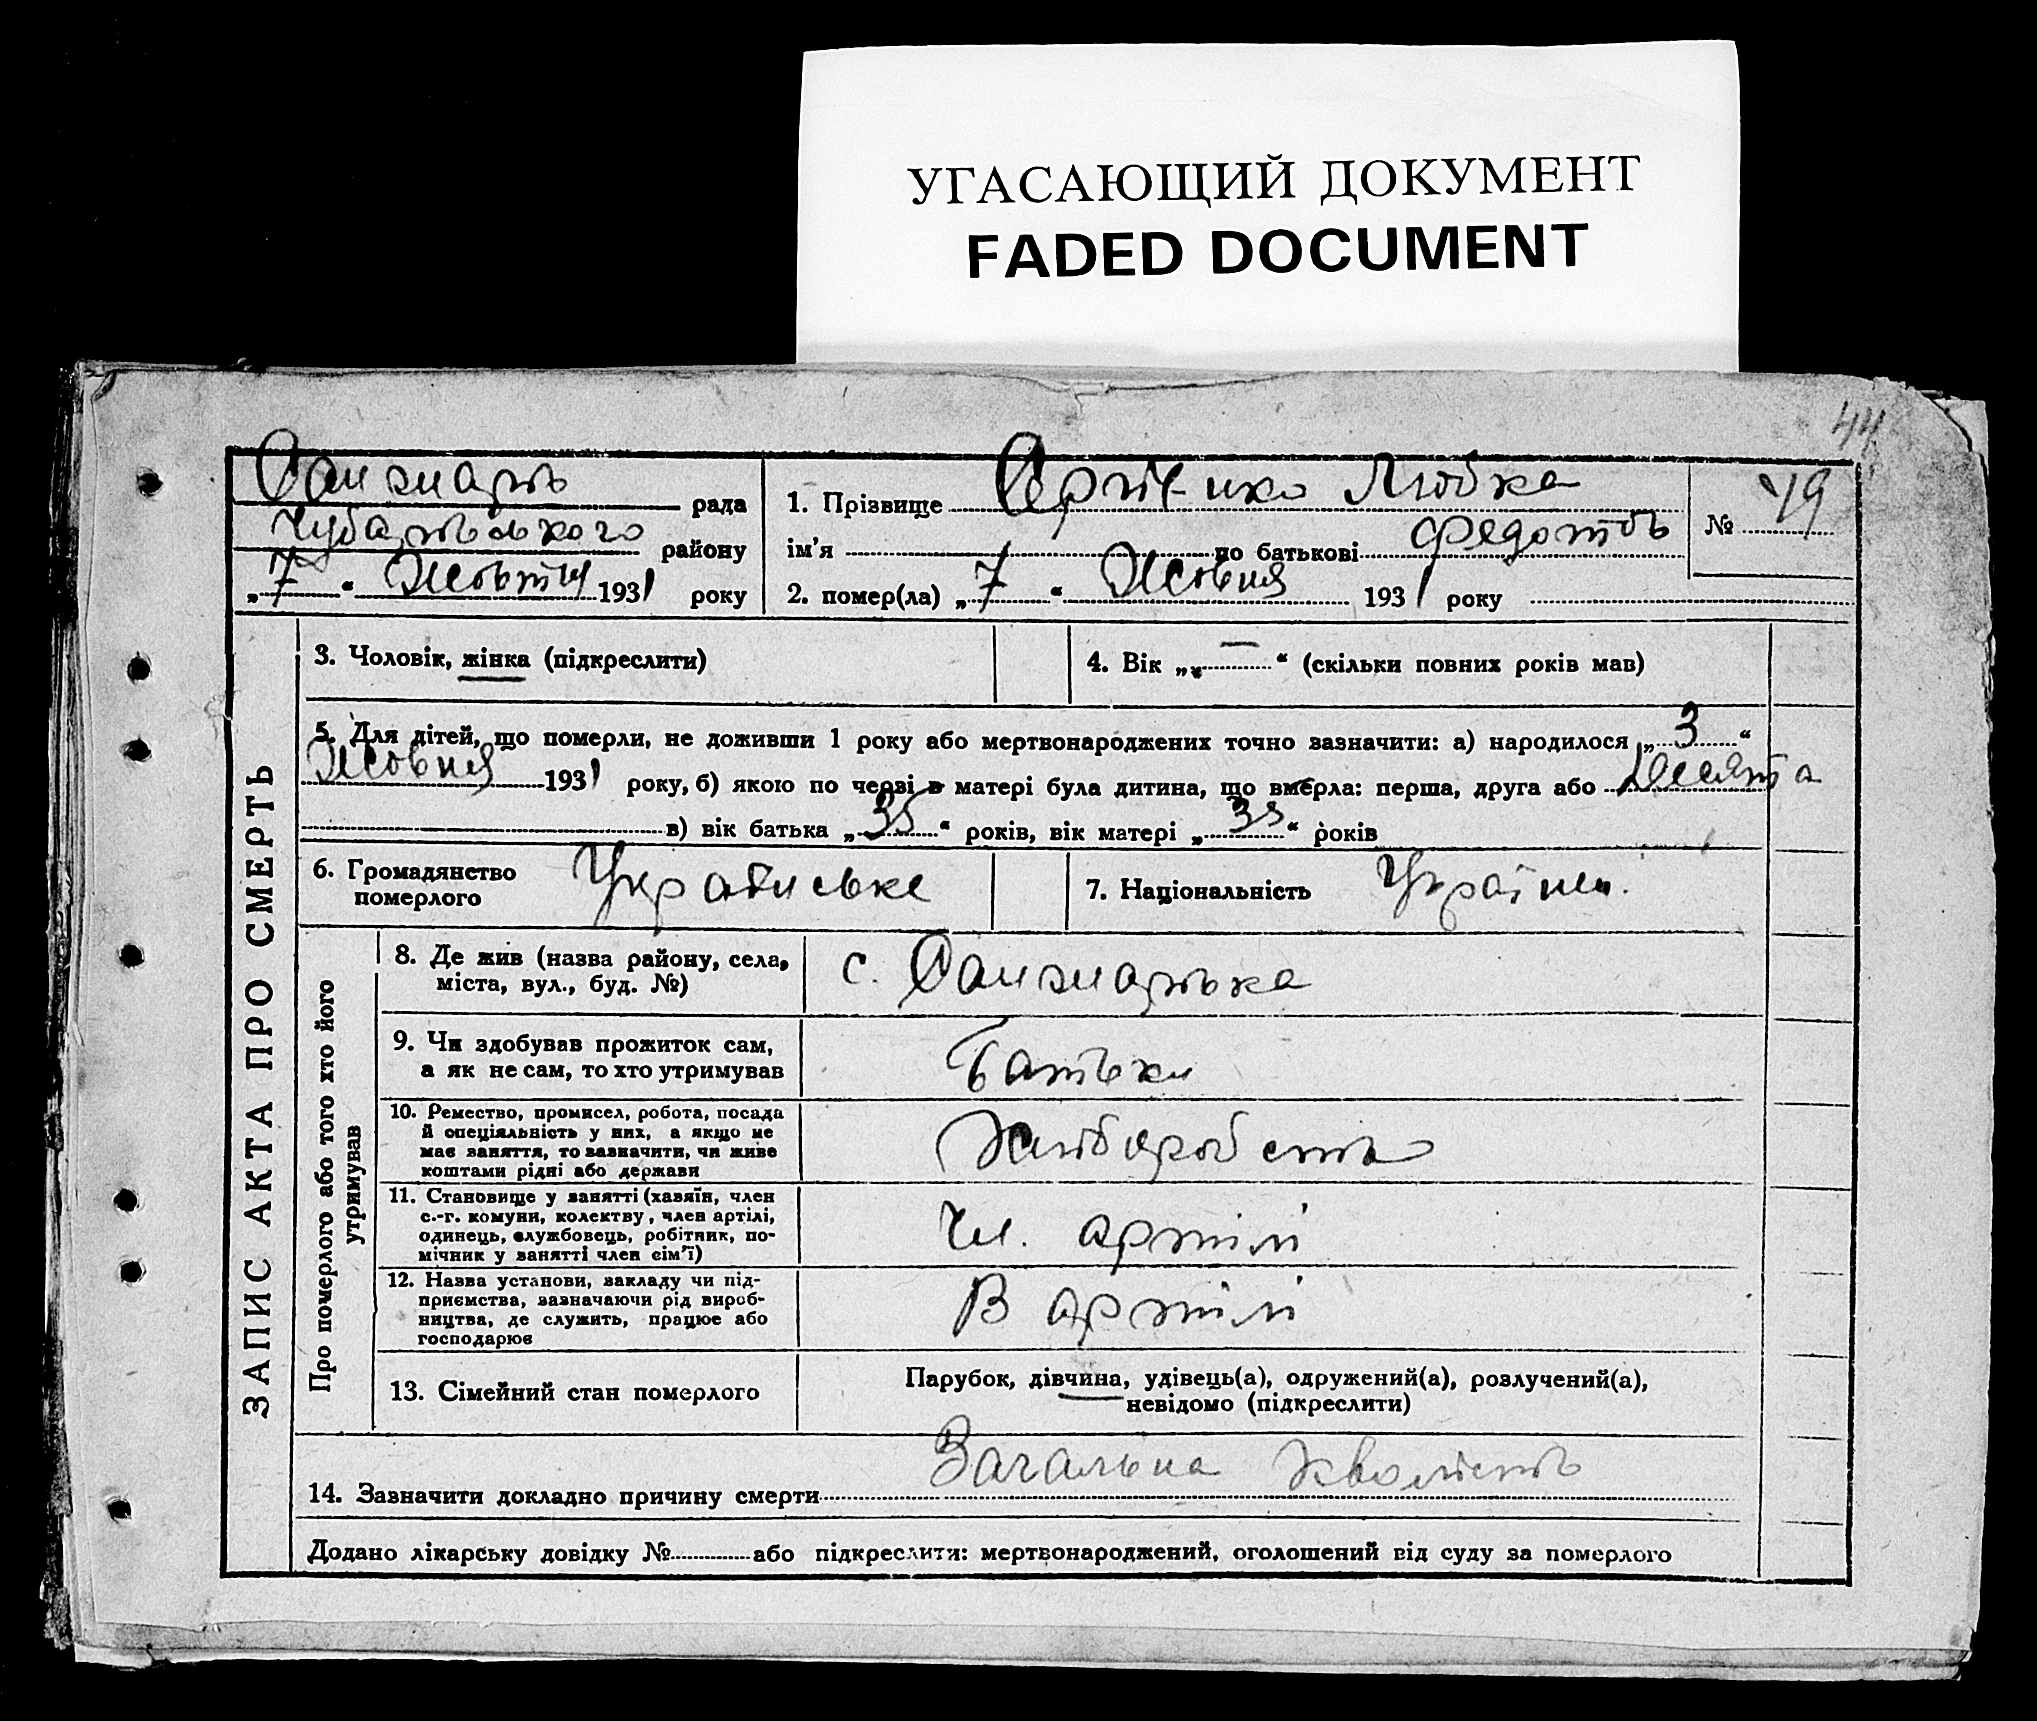 УГАСАЮЩИЙ ДОКУМЕНТ
FADED DOCUMENT
44
рада
району
„7“ 1931 року
1. Прізвище Любка
ім’я по батькові
2. помер(ла) „7“ Жовтня 1931 року
№ 49
ЗАПИС АКТА ПРО СМЕРТЬ
3. Чоловік, жінка (підкреслити)
4. Вік „—“ (скільки повних років мав)
5. Для дітей, що померли, не доживши 1 року або мертвонароджених точно зазначити: а) народилося „3“
1931 року, б) якою по черві в матері була дитина, що вмерла: перша, друга або десята
в) вік батька „35“ років, вік матері „“ років
6. Громадянство
померлого
Українське
7. Національність Україн.
Про померлого або того хто його
утримував
8. Де жив (назва району, села,
міста, вул., буд. №)
с.
9. Чи здобував прожиток сам,
а як не сам, то хто утримував
Батьки
10. Ремество, промисел, робота, посада
й спеціяльність у них, а якщо не
має заняття, то зазначити, чи живе
коштами рідні або держави
11. Становище у занятті (хазяїн, член
с.-г. комуни, колектву, член артілі,
одинець, службовець, робітник, по-
мічник у занятті член сім’ї)
Чл. артілі
12. Назва установи, закладу чи під-
приємства, зазначаючи рід вироб-
ництва, де служить, працює або
господарює
В артілі
13. Сімейний стан померлого
Парубок, дівчина, удівець(а), одружений(а), розлучений(а),
невідомо (підкреслити)
14. Зазначити докладно причину смерти Загальна
Додано лікарську довідку № або підкреслити: мертвонароджений, оголошений від суду за померлого